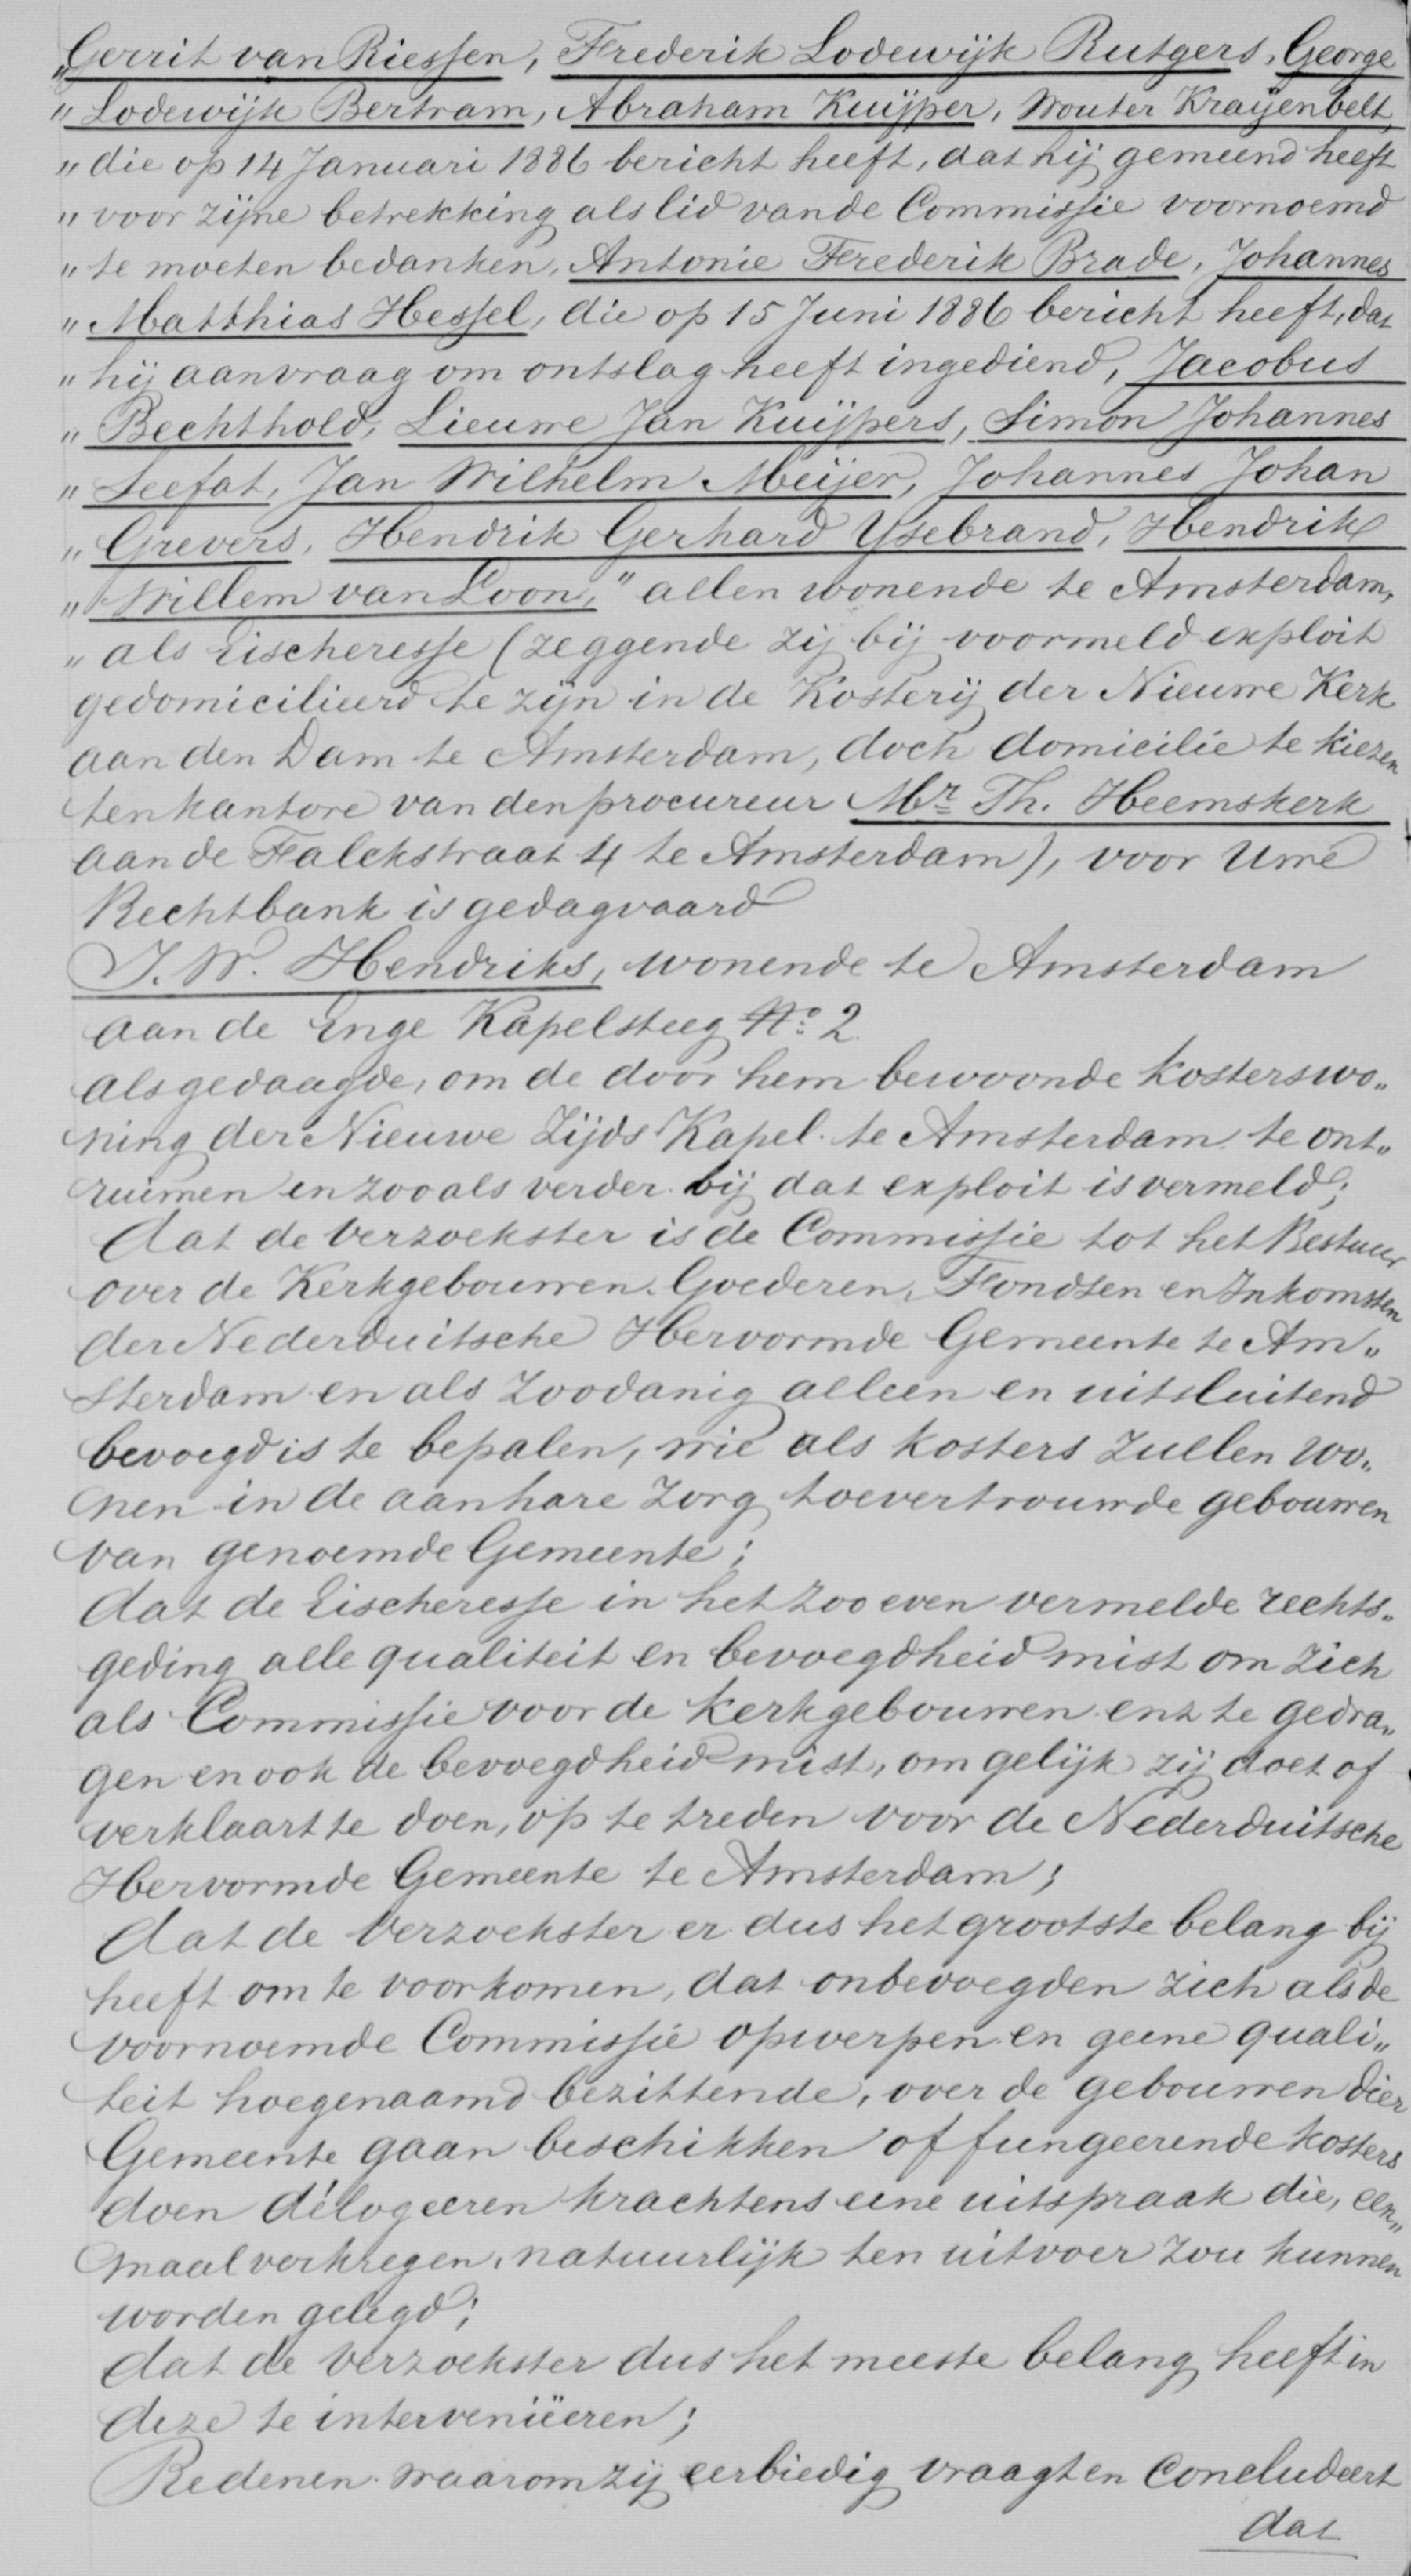 „Gerrit van Riessen, Frederik Lodewijk Rutgers, George
„Lodewijk Bertram, Abraham Kuijper, Wouter Kraijenbelt,
„die op 14 Januari 1886 bericht heeft, dat hij gemeend heeft
„voor zijne betrekking als lid van de Commissie voornoemd
„te moeten bedanken, Antonie Frederik Brade, Johannes
„Matthias Hessel, die op 15 Juni 1886 bericht heeft, dat
„hij aanvraag om ontslag heeft ingediend, Jacobus
„Bechthold, Lieuwe Jan Kuijpers, Simon Johannes
„Seefat, Jan Wilhelm Meijer, Johannes Johan
„Grevers, Hendrik Gerhard Ysebrand, Hendrik
„Willem van Loon," allen wonende te Amsterdam,
„als Eischeresse (zeggende zij bij voormeld exploit
gedomicilieerd te zijn in de Kosterij der Nieuwe Kerk
aan den Dam te Amsterdam, doch domicilie te kiezen
ten kantore van den procureur Mr Th. Heemskerk
aan de Falckstraat 4 te Amsterdam), voor Uwe
Rechtbank is gedagvaard
J. W. Hendriks, wonende te Amsterdam
aan de Enge Kapelsteeg No 2
als gedaagde, om de door hem bewoonde kosterswo„
ning der Nieuwe Zijds Kapel te Amsterdam te ont„
ruimen en zooals verder bij dat exploit is vermeld;
dat de verzoekster is de Commissie tot het Bestuur
over de Kerkgebouwen, Goederen, Fondsen en Inkomsten
der Nederduitsche Hervormde Gemeente te Am„
sterdam en als zoodanig alleen en uitsluitend
bevoegd is te bepalen, wie als kosters zullen wo„
nen in de aan hare zorg toevertrouwde gebouwen
van genoemde Gemeente;
dat de Eischeresse in het zoo even vermelde rechts„
geding alle qualiteit en bevoegdheid mist om zich
als Commissie voor de kerkgebouwen enz te gedra„
gen en ook de bevoegdheid mist, om gelijk zij doet of
verklaart te doen, op te treden voor de Nederduitsche
Hervormde Gemeente te Amsterdam;
dat de verzoekster er dus het grootste belang bij
heeft om te voorkomen, dat onbevoegden zich als de
voornoemde Commissie opwerpen en geene quali„
teit hoegenaamd bezittende, over de gebouwen dier
Gemeente gaan beschikken of fungeerende kosters
doen délogeeren krachtens eene uitspraak die, een„
maal verkregen, natuurlijk ten uitvoer zou kunnen
worden gelegd;
dat de verzoekster dus het meeste belang heeft in
deze te interveniëeren;
Redenen waarom zij eerbiedig vraagt en concludeert
dat